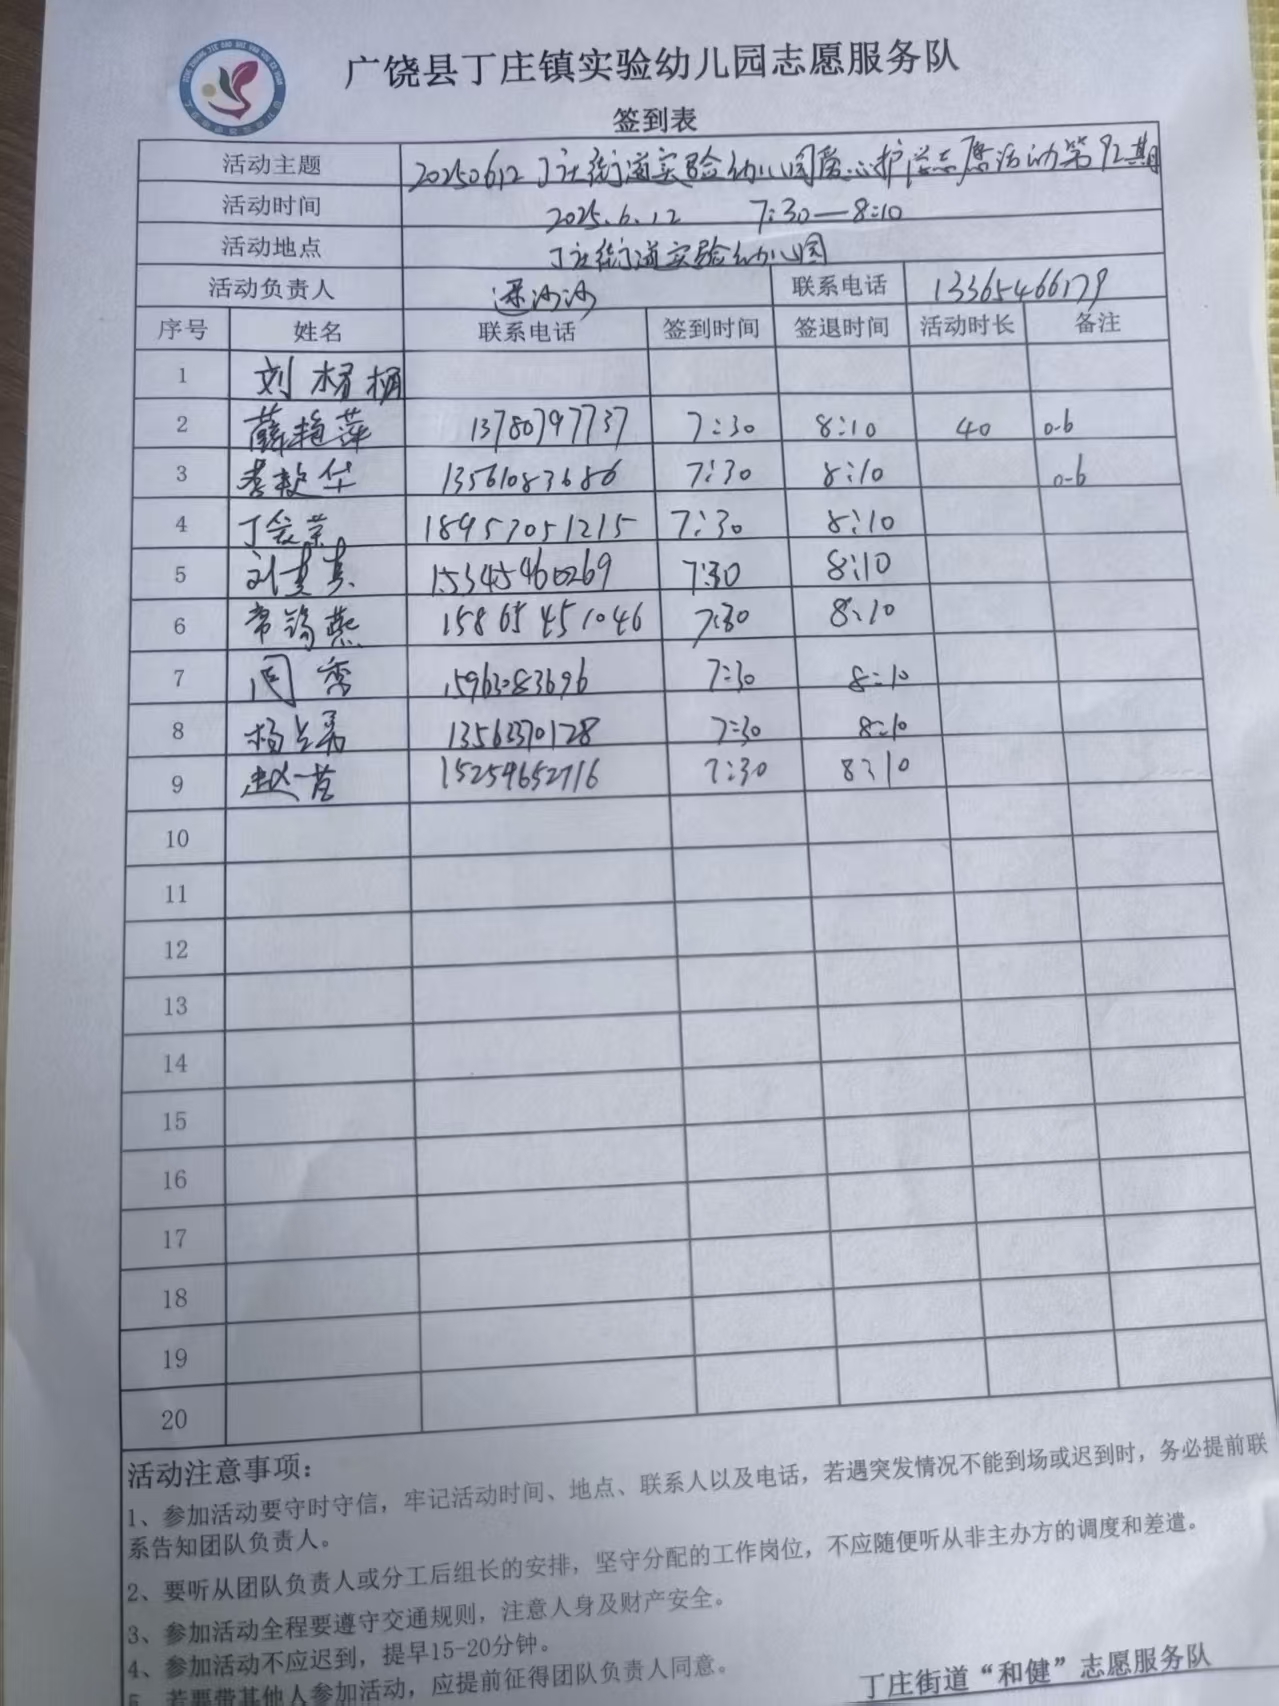 广饶县丁庄镇实验幼儿园志愿服务队
签到表
活动主题 20250612丁庄街道实验幼儿园爱心护学志愿活动第92期
活动时间 2025.6.12 7:30—8:10
活动地点 丁庄街道实验幼儿园
活动负责人 沙沙 联系电话 13365466179
序号 姓名 联系电话 签到时间 签退时间 活动时长 备注
1 刘
2 薛艳萍 13780797737 7:30 8:10 40 0.6
3 李 华 13561083686 7:30 8:10 0.6
4 丁 荣 18957051215 7:30 8:10
5 刘 真 15345460269 7:30 8:10
6 常 燕 15865451046 7:30 8:10
7 周 秀 15963083696 7:30 8:10
8 杨 勇 13562370128 7:30 8:10
9 赵一 15259652716 7:30 8:10
10
11
12
13
14
15
16
17
18
19
20
活动注意事项：
1、参加活动要守时守信，牢记活动时间、地点、联系人以及电话，若遇突发情况不能到场或迟到时，务必提前联
系告知团队负责人。
2、要听从团队负责人或分工后组长的安排，坚守分配的工作岗位，不应随便听从非主办方的调度和差遣。
3、参加活动全程要遵守交通规则，注意人身及财产安全。
4、参加活动不应迟到，提早15-20分钟。
5、若要带其他人参加活动，应提前征得团队负责人同意。
丁庄街道“和健”志愿服务队